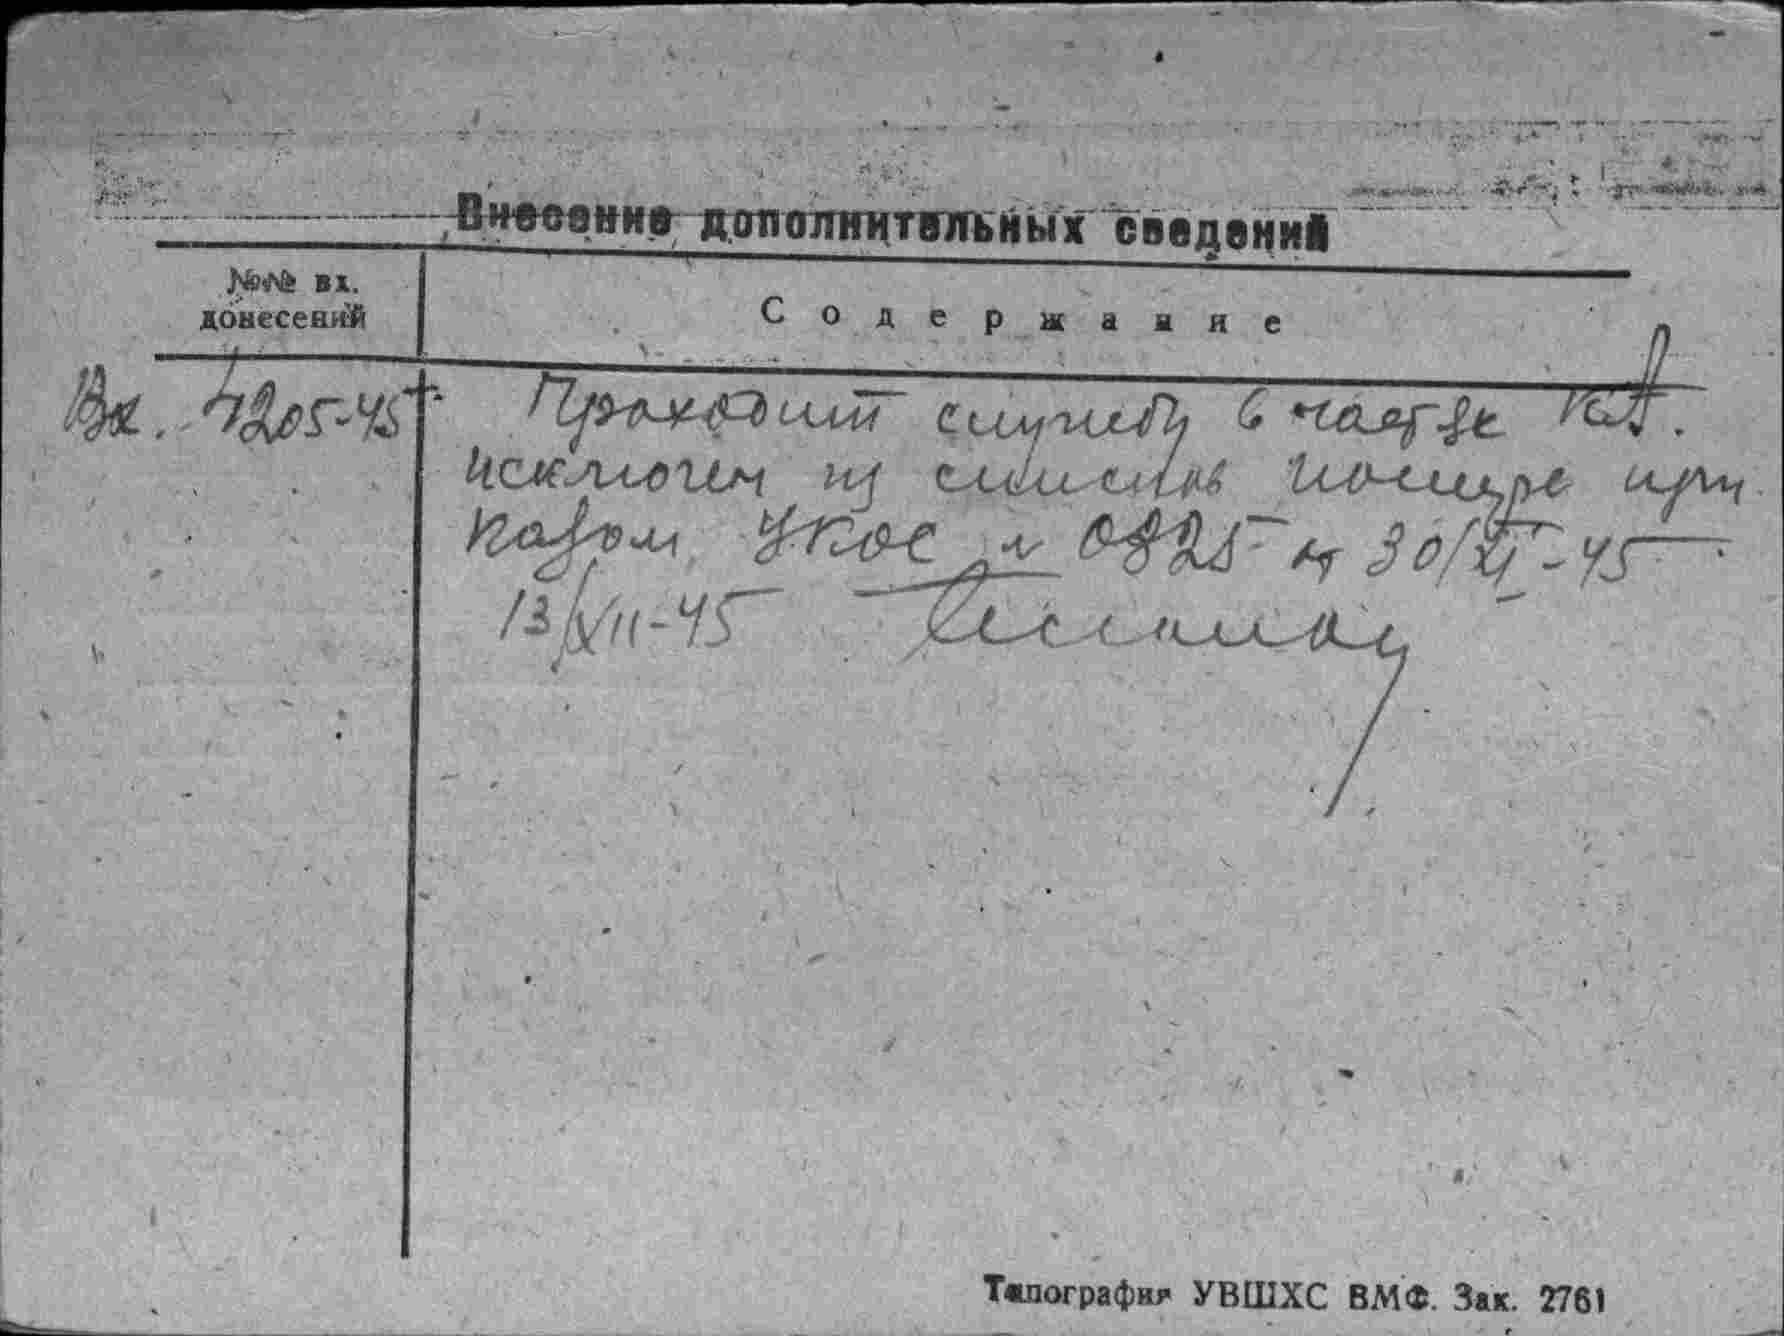 Внесение дополнительных сведений
№№ вх.
донесений
Содержание
Вх. 4205-45 г.
Проходит службу в частях КА.
исключен из списков потерь при
казом УКОС № 0825 от 30/XI-45
13/XII-45
Типография УВШХС ВМФ. Зак. 2761